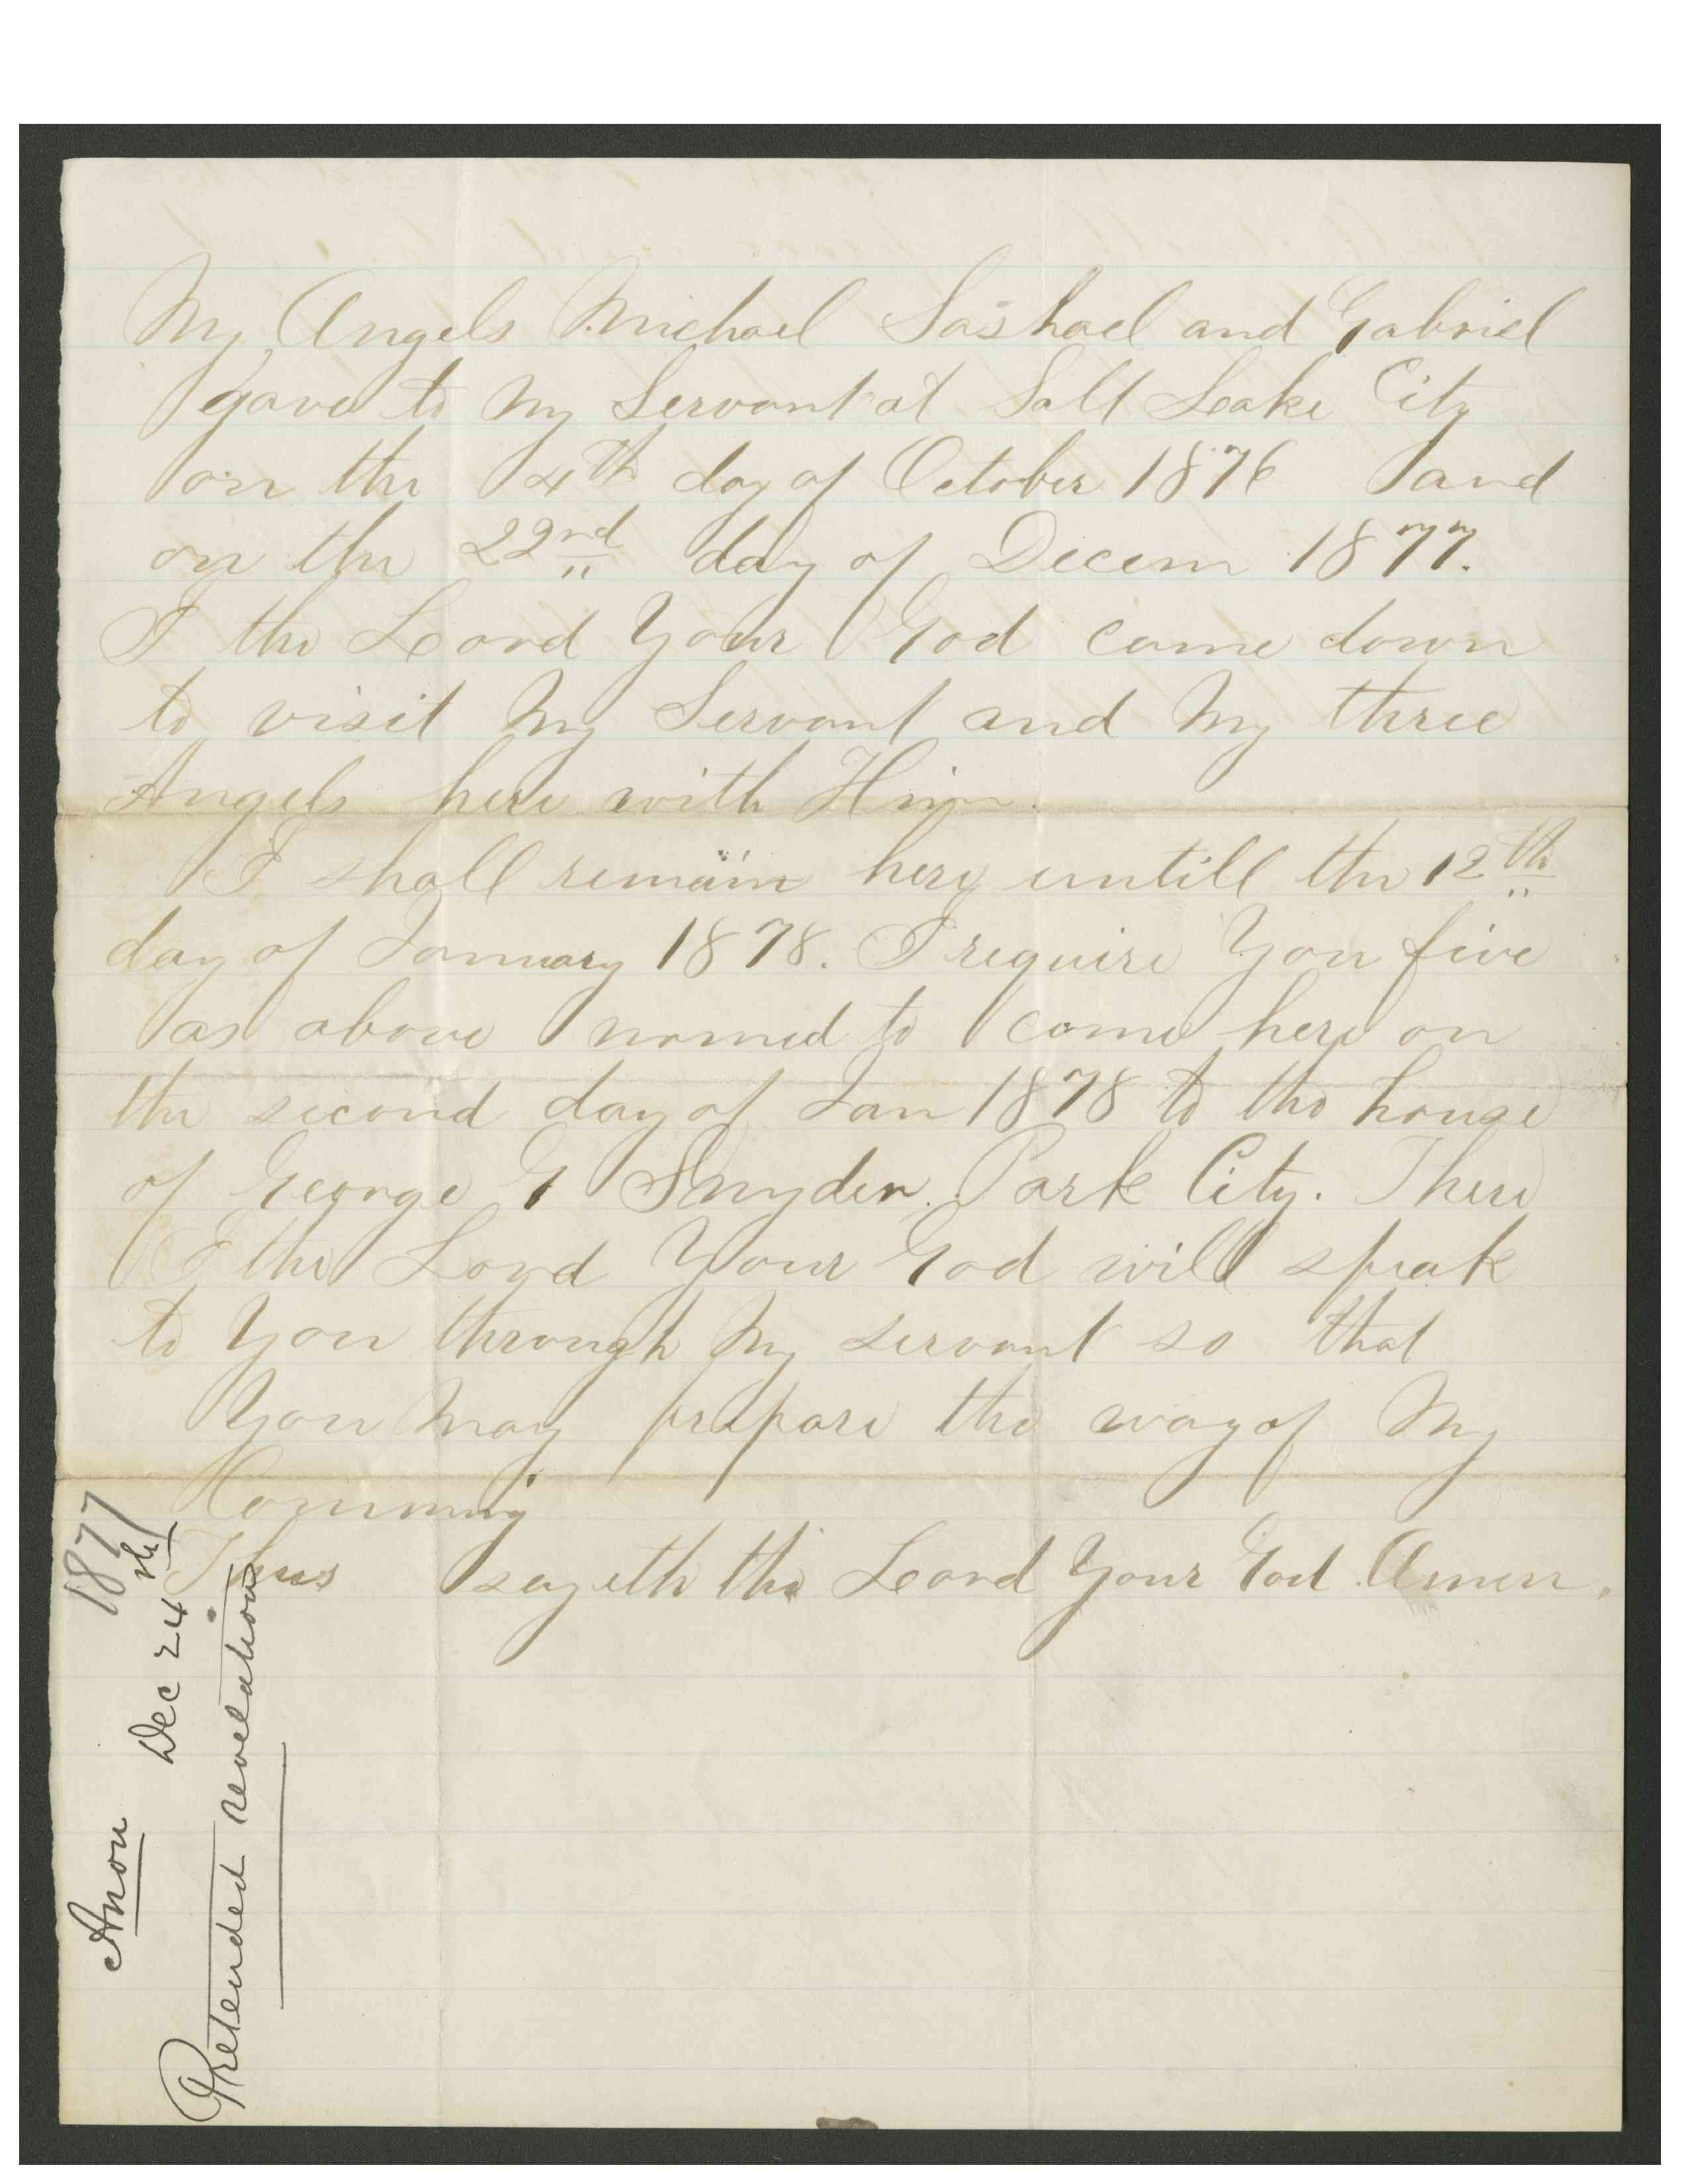 My Angels Michael Sashael and Gabriel
gave to My Servant at Salt Leake City
on the 4th day of October 1876 and
on the 22nd day of Decem 1877.
I the Leord Your God came down
to visit My Servant and My three
Angels here with Him.
I shall remain here untill the 12th
day of January 1878. I require You five
as above named to come here on
the second day of Jan 1878 to the house
of George G Snyder. Park City. There
I the Lord Your God will speak
to You through My servant so that
You May prepare the way of My
Comming
Thus sayeth the Leord Your God. Amen.
1877
Anon Dec 24th
Pretended revelation